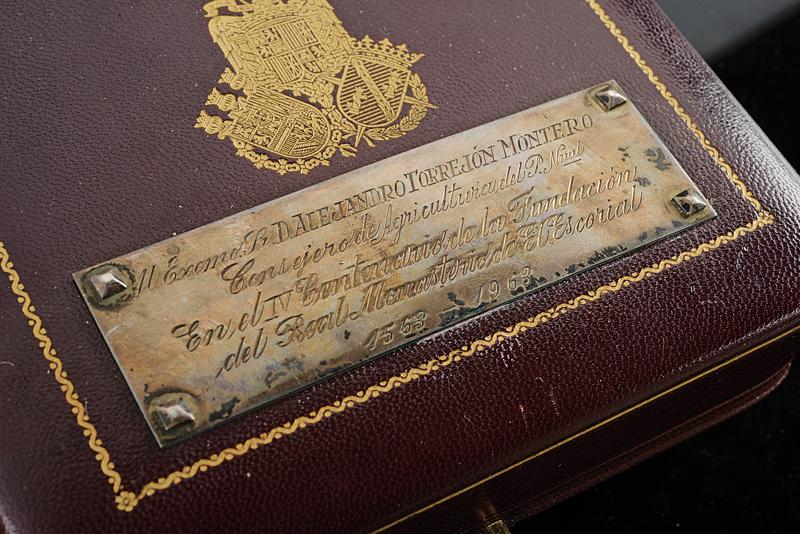 Al Excmo. Sr. D. ALEJANDRO TORREJÓN MONTERO
Consejero de Agricultura del P. Nnal
En el IV Centenario de la Fundación
del Real Monasterio de El Escorial
1563 1963